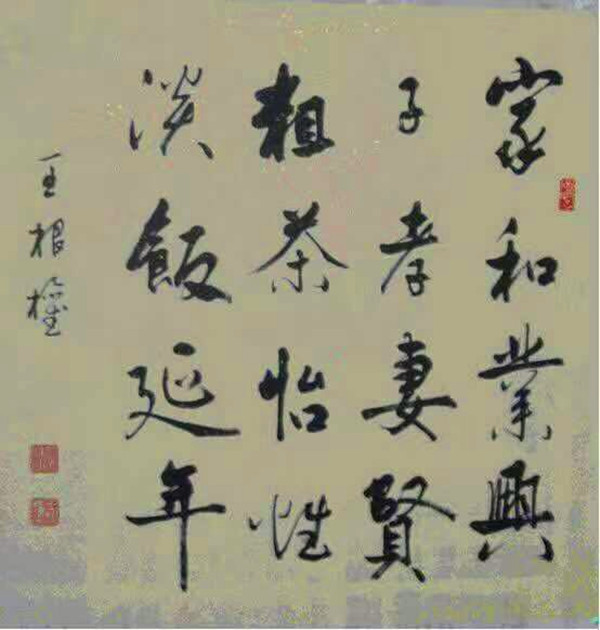 家和業興
子孝妻賢
粗茶怡性
淡飯延年
王根權